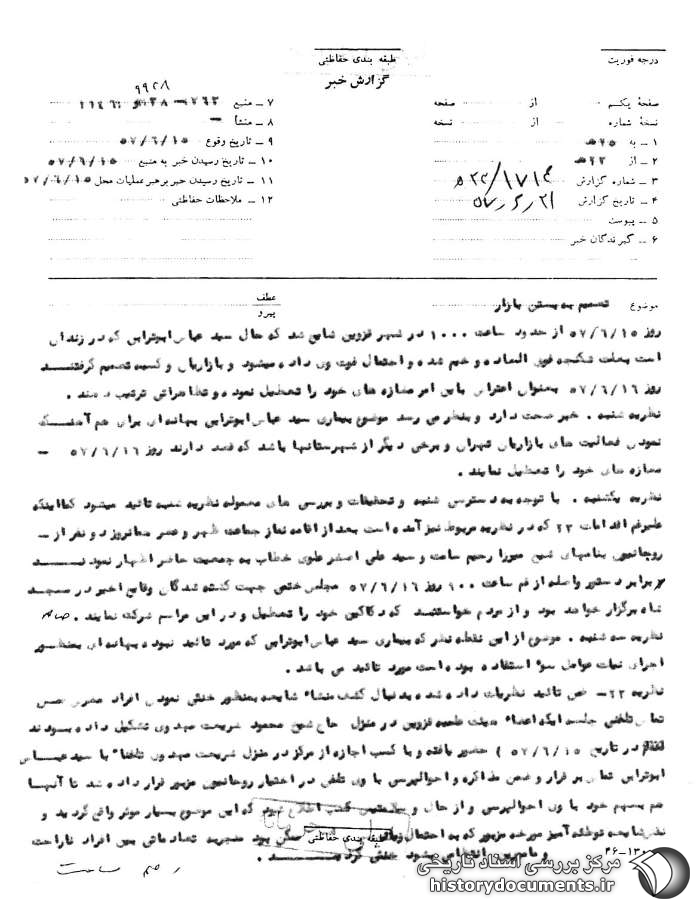 درجه فوریت
طبقه بندی حفاظتی
گزارش خبر
صفحهٔ یکم از صفحه
نسخهٔ شماره از نسخه
۱ ـ به ۵۲۵
۲ ـ از ۵۲۲
۳ ـ شماره گزارش ۵۲۲/۱۷۱۴
۴ ـ تاریخ گزارش
۵ ـ پیوست
۶ ـ گیرندگان خبر
۹۹۲۸
۷ ـ منبع
۸ ـ منشأ ـ
۹ ـ تاریخ وقوع ۵۷/۶/۱۵
۱۰ ـ تاریخ رسیدن خبر به منبع ۵۷/۶/۱۵
۱۱ ـ تاریخ رسیدن خبر برهبر عملیات محل ۵۷/۶/۱۵
۱۲ ـ ملاحظات حفاظتی
موضوع تصمیم به بستن بازار
عطف
پیرو
روز ۵۷/۶/۱۵ از حدود ساعت ۱۰۰۰ در شهر قزوین شایع شد که حال سید عباس ابوترابی که در زندان
است بعلت شکنجه فوق العاده وخیم شده و احتمال فوت وی داده میشود و بازاریان و کسبه تصمیم گرفتند
روز ۵۷/۶/۱۶ بعنوان اعتراض باین امر مغازه های خود را تعطیل نموده و تظاهراتی ترتیب دهند .
نظریه شنبه . خبر صحت دارد و بنظر می رسد موضوع بیماری سید عباس ابوترابی بهانه ای برای هم آهنگ
نمودن فعالیت های بازاریان تهران و برخی دیگر از شهرستانها باشد که قصد دارند روز ۵۷/۶/۱۶ ـ
مغازه های خود را تعطیل نمایند .
نظریه یکشنبه . با توجه به دسترسی شنبه و تحقیقات و بررسی های معموله نظریه شنبه تائید میشود کما اینکه
علیرغم اقدامات ۲۳ که در نظریه مربوط نیز آمده است بعد از اقامه نماز جماعت ظهر و عصر همانروز دو نفر از ـ
روحانیون بنامهای شیخ میرزا رحیم سامت و سید علی اصغر علوی خطاب به جمعیت حاضر اظهار نمودند
برابر دستور واصله از قم ساعت روز ۵۷/۶/۱۶ مجلس ختمی جهت کشته شدگان وقایع اخیر در مسجد
شاه برگزار خواهد بود و از مردم خواستند که دکاکین خود را تعطیل و در این مراسم شرکت نمایند .
نظریه سه شنبه . موضوع از این نقطه نظر که بیماری سید عباس ابوترابی که مورد تائید نبوده بهانه ای بمنظور
اجرای نیات عوامل سوء استفاده بوده است مورد تائید می باشد .
نظریه ۲۳ـ ضمن تائید نظریات داده شده بدنبال کشف منشاء شایعه بمنظور خنثی نمودن افراد
تماس تلفنی جلسه ایکه اعضاء هیئت علمیه قزوین در منزل حاج شیخ محمود شریعت مهدوی تشکیل داده بودند
در تاریخ ۵۷/۶/۱۵ ) حضور یافته و با کسب اجازه از مرکز در منزل شریعت مهدوی تلفناً با سید عباس
ابوترابی تماس برقرار و ضمن مذاکره و احوالپرسی با وی تلفن در اختیار روحانیون مزبور قرار داده شد تا آنها
هم بسهم خود با وی احوالپرسی و از حال و کسب اطلاع نمود که این موضوع بسیار موثر واقع گردید و
شایعه توطئه آمیز مورخه مزبور که به احتمال زیاد ممکن بود منجر به تصادماتی بین افراد ناراحت
و مامورین انتظامی میشود خنثی گردید .
طبقه بندی حفاظتی
رحیم سامت
مرکز بررسی اسناد تاریخی
historydocuments.ir